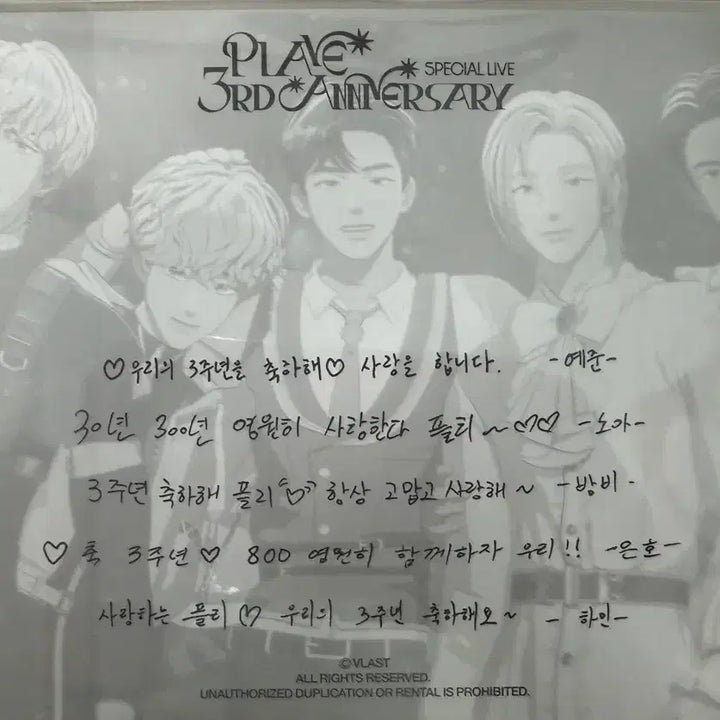 PLAVE
SPECIAL LIVE
3RD ANNIVERSARY
♡우리의 3주년을 축하해♡ 사랑을 합니다. -예준-
30년 300년 영원히 사랑한다 플리~♡♡ -노아-
3주년 축하해 플리♡ 항상 고맙고 사랑해~ -밤비-
♡ 축 3주년 ♡ 800 영원히 함께하자 우리!! -은호-
사랑하는 플리♡ 우리의 3주년 축하해요~ -하민-
©VLAST
ALL RIGHTS RESERVED.
UNAUTHORIZED DUPLICATION OR RENTAL IS PROHIBITED.